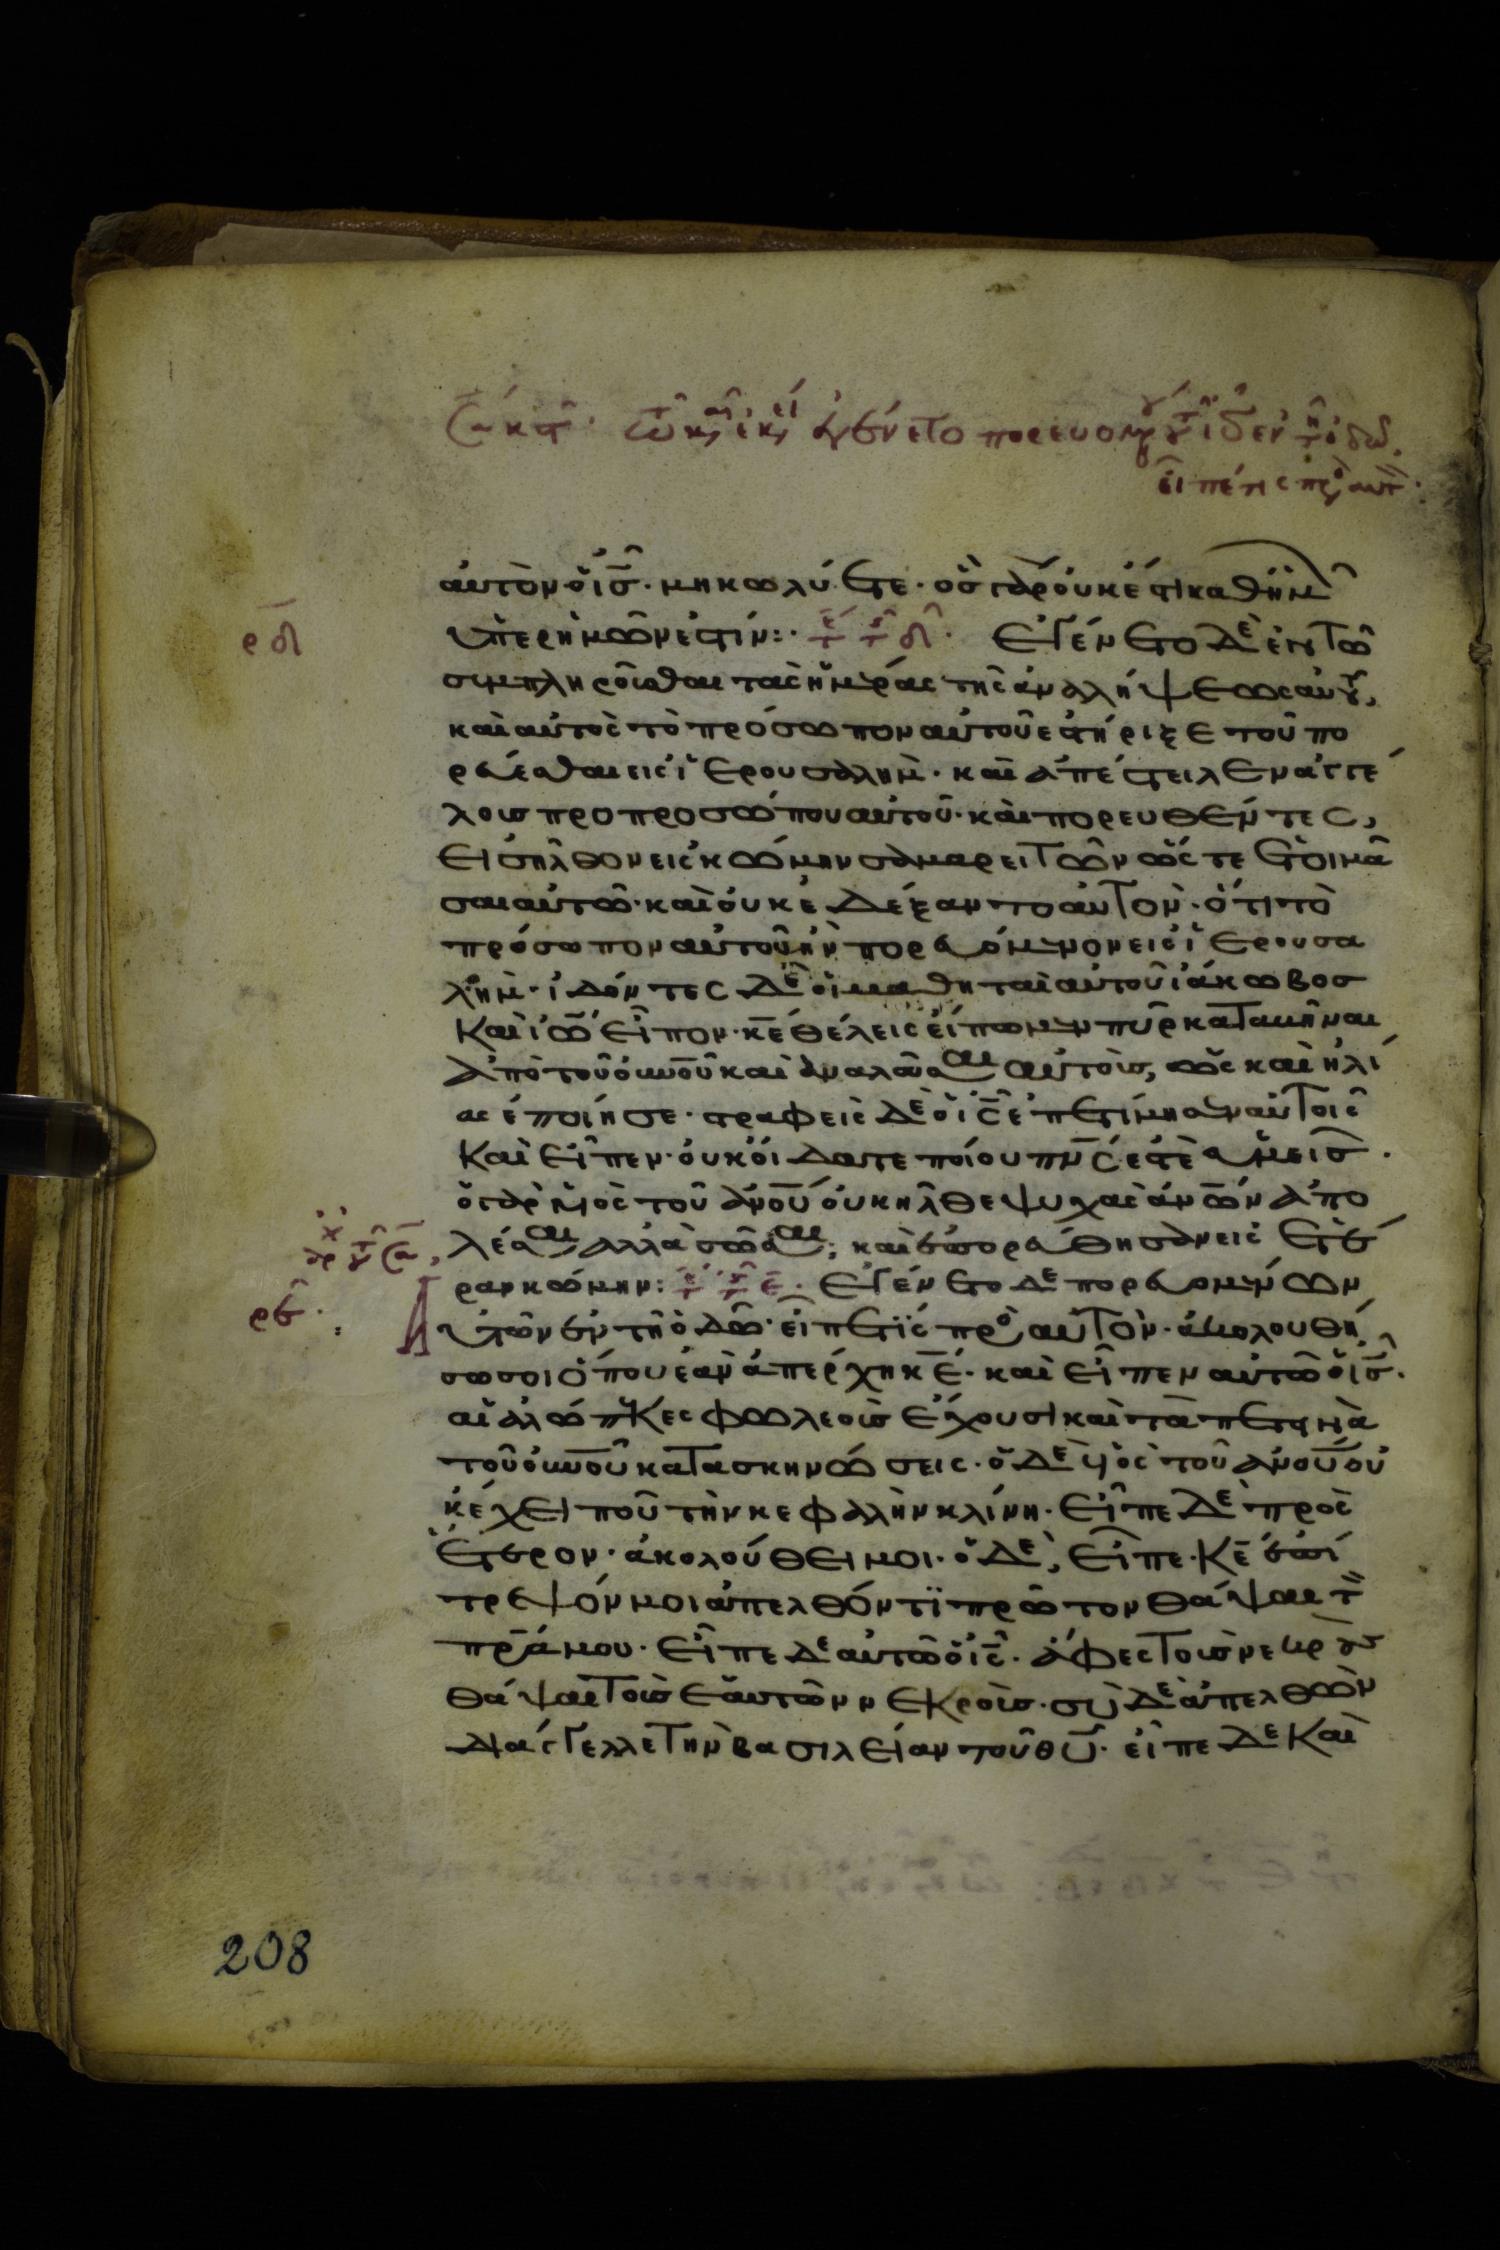 τῷ κ, ἐκ, ἐγένετο πορευομ τοῦ ιῦ ἐν τῇ ὁδῷ.
εἶπέ τις πρὸς αὐτ
αὐτὸν ὁ ἰς̅· μὴ κωλύετε· ὃς γὰρ οὐκ ἔστι καθ' ἡμῶ
ρδ
ὑπὲρ ἡμῶν ἐστίν: · Ἐγένετο δὲ ἐν τῶ
συμπληροῦσθαι τὰς ἡμέρας τῆς ἀναλήψεως αὐτοῦ,
καὶ αὐτὸς τὸ πρόσωπον αὐτοῦ ἐστήριξε τοῦ πο
ρεύεσθαι εἰς ἱερουσαλήμ· καὶ ἀπέστειλεν ἀγγέ
λους πρὸ προσώπου αὐτοῦ· καὶ πορευθέντες,
εἰσῆλθον εἰς κώμην σαμαρειτῶν ὥστε ἑτοιμά
σαι αὐτῶ· καὶ οὐκ ἐδέξαντο αὐτὸν· ὅτι τὸ
πρόσωπον αὐτοῦ ἦν πορευόμενον εἰς ἱερουσα
λήμ· ἰδόντες δὲ οἱ μαθηταὶ αὐτοῦ ἰάκωβος
καὶ ἰω̅ εἶπον· κ̅ε θέλεις εἴπωμεν πῦρ καταβῆναι
ἀπὸ τοῦ οὐνοῦ καὶ ἀναλῶσαι αὐτοὺς, ὡς καὶ ἠλί
ας ἐποίησε· στραφεὶς δὲ ὁ ἰς̅ ἐπετίμησεν αὐτοῖς
καὶ εἶπεν· οὐκ οἴδατε ποίου πνς̅ ἐστὲ ὑμεῖς·
ὁ γὰρ υἱὸς τοῦ ἀνου̅ οὐκ ἦλθε ψυχὰς ἀνω̅ν ἀπο
λέσαι, ἀλλὰ σῶσαι; καὶ ἐπορεύθησαν εἰς ἑτέ
ραν κώμην: · Ἐγένετο δὲ πορευομένων
ρε
αὐτῶν ἐν τῇ ὁδῶ· εἶπέ τις πρὸς αὐτὸν· ἀκολουθή
σω σοι ὅπου ἐὰν ἀπέρχη κ̅ε· καὶ εἶπεν αὐτῶ ὁ ἰς̅·
αἱ ἀλώπηκες φωλεοὺς ἔχουσι καὶ τὰ πετεινὰ
τοῦ οὐνοῦ κατασκηνώσεις· ὁ δὲ υἱὸς τοῦ ἀνου̅ οὐ
κ ἔχει ποῦ τὴν κεφαλὴν κλίνη· εἶπε δὲ πρὸς
ἕτερον· ἀκολούθει μοι· ὁ δὲ, εἶπε· κ̅ε ἐπί
τρεψόν μοι ἀπελθόντι πρῶτον θάψαι τ
π̅ρα μου· εἶπε δὲ αὐτῶ ὁ ἰς̅· ἄφες τοὺς νεκροὺς
θάψαι τοὺς ἑαυτῶν νεκροὺς· σὺ δὲ ἀπελθὼν
διάγγελλε τὴν βασιλείαν τοῦ θυ̅· εἶπε δὲ καὶ
208